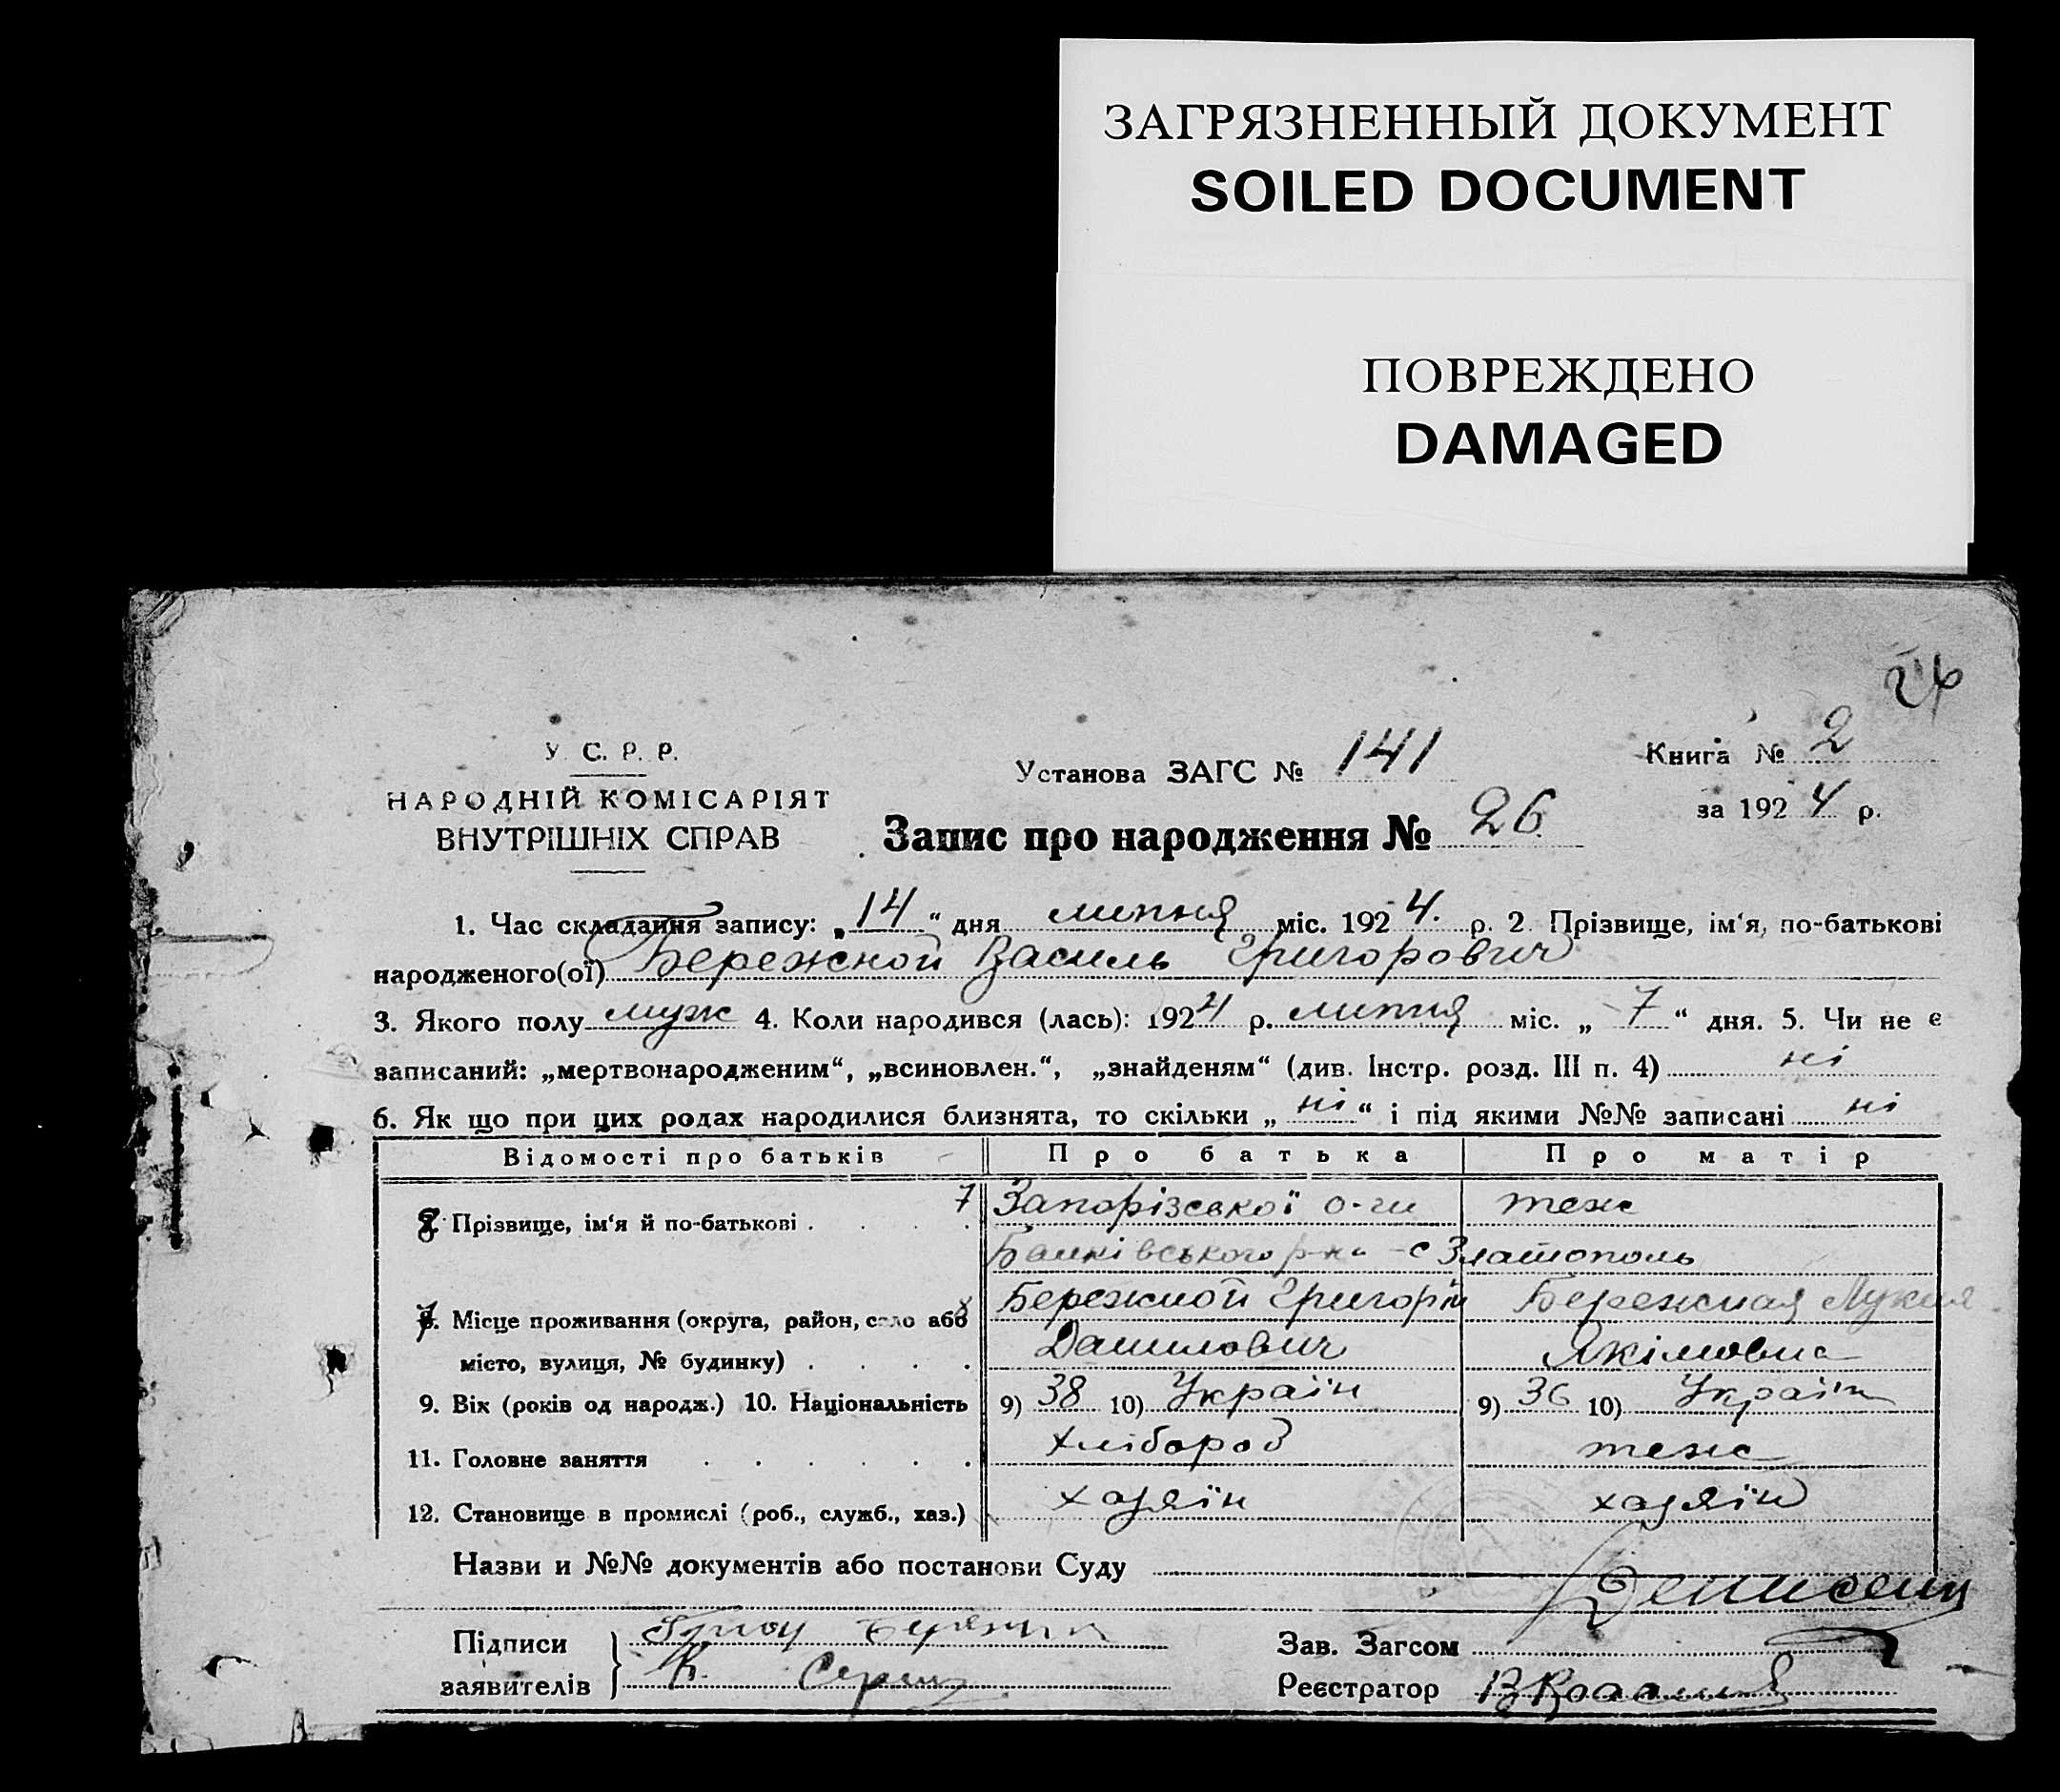 ЗАГРЯЗНЕННЫЙ ДОКУМЕНТ
SOILED DOCUMENT
ПОВРЕЖДЕНО
DAMAGED
24
У. С. Р. Р.
НАРОДНІЙ КОМІСАРІЯТ
ВНУТРІШНІХ СПРАВ
Установа ЗАГС № 141
Книга № 2
за 1924 р.
Запис про народження № 26
1. Час складання запису: „14“ дня липня міс. 1924. р. 2 Прізвище, ім‘я, по-батькові
народженого(ої) Бережной Василь Григорович
3. Якого полу муж 4. Коли народився (лась): 1924 р. липня міс. „7“ дня. 5. Чи не є
записаний: „мертвонародженим“, „всиновлен.“, „знайденям“ (див. Інстр. розд. III п. 4) ні
6. Як що при цих родах народилися близнята, то скільки „ні“ і під якими №№ записані ні
Відомості про батьків Про батька Про матір
8. Прізвище, ім‘я й по-батькові . . . 7 Запорізської о-ги теж
р-на с Златополь
7. Місце проживання (округа, район, село або 8 Бережной Григорій Бережная
місто, вулиця, № будинку) . . . . Данилович Якімовна
9. Вік (років од народж.) 10. Національність 9) 38 10) Україн 9) 36 10) Україн
11. Головне заняття . . . . . . хлібороб теж
12. Становище в промислі (роб., служб., хаз.) хазяїн хазяїн
Назви и №№ документів або постанови Суду
Підписи
заявителів
Зав. Загсом
Реєстратор